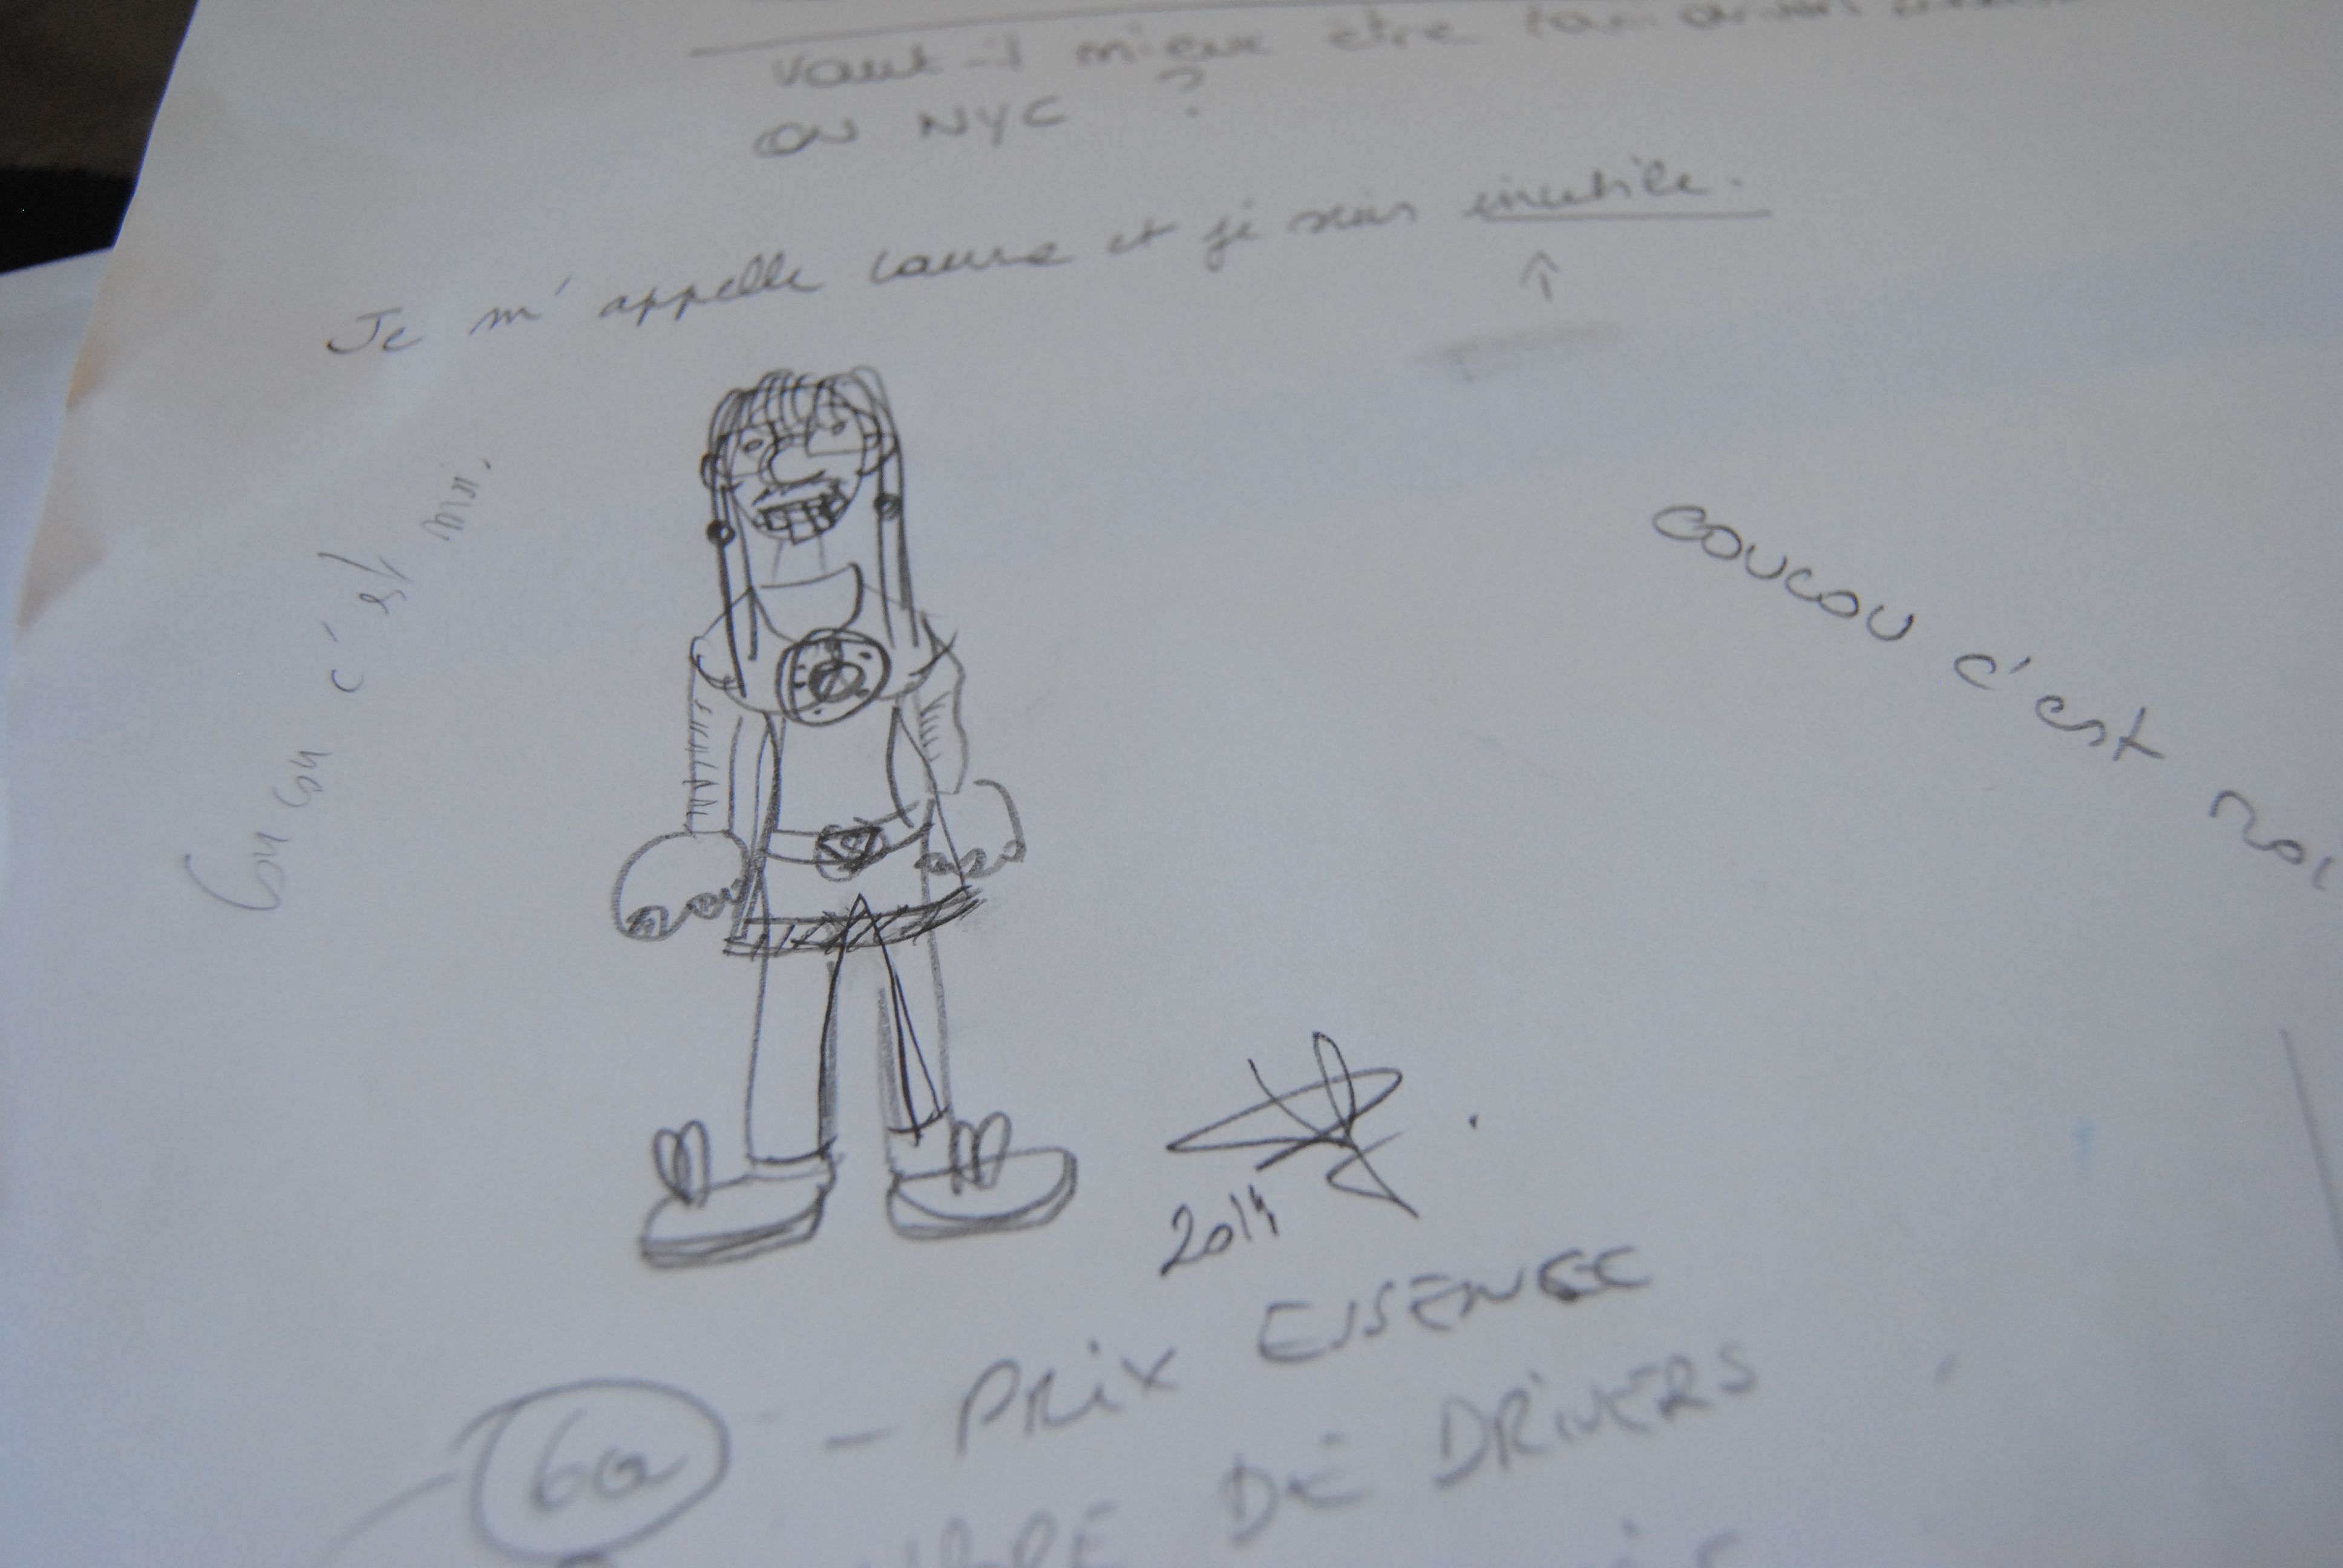 Vaut-il mieux être taxi driver
ou NYC ?
Je m'appelle Laure et je suis inutile.
Coucou c'est moi.
coucou c'est
2014
6a
- PRIX ESSENCE
DE DRIVERS